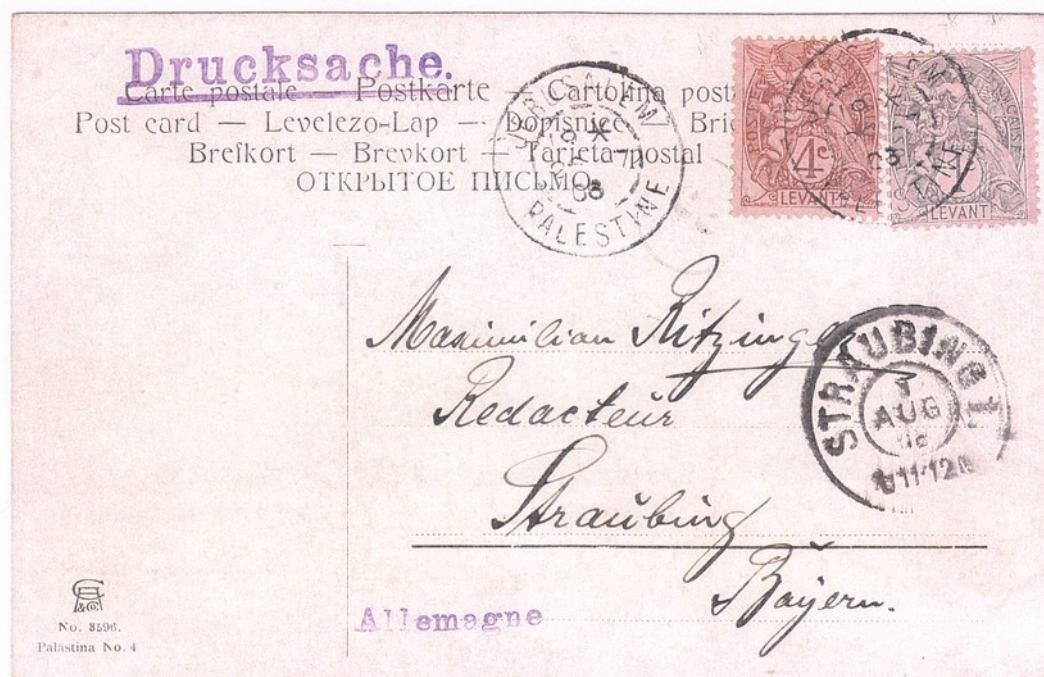 Drucksache.
Carte postale — Postkarte — Cartolina post
Post card — Levelezo-Lap — Dopisnice — Bri
Brefkort — Brevkort — Tarjeta postal
ОТКРЫТОЕ ПИСЬМО
JERUSALEM
PALESTINE
4c
LEVANT
LEVANT
Maximilian Ritzinger
Redacteur
Straubing
Bayern.
STRAUBING 1
AUG
Allemagne
& Co
No. 8596.
Palästina No. 4